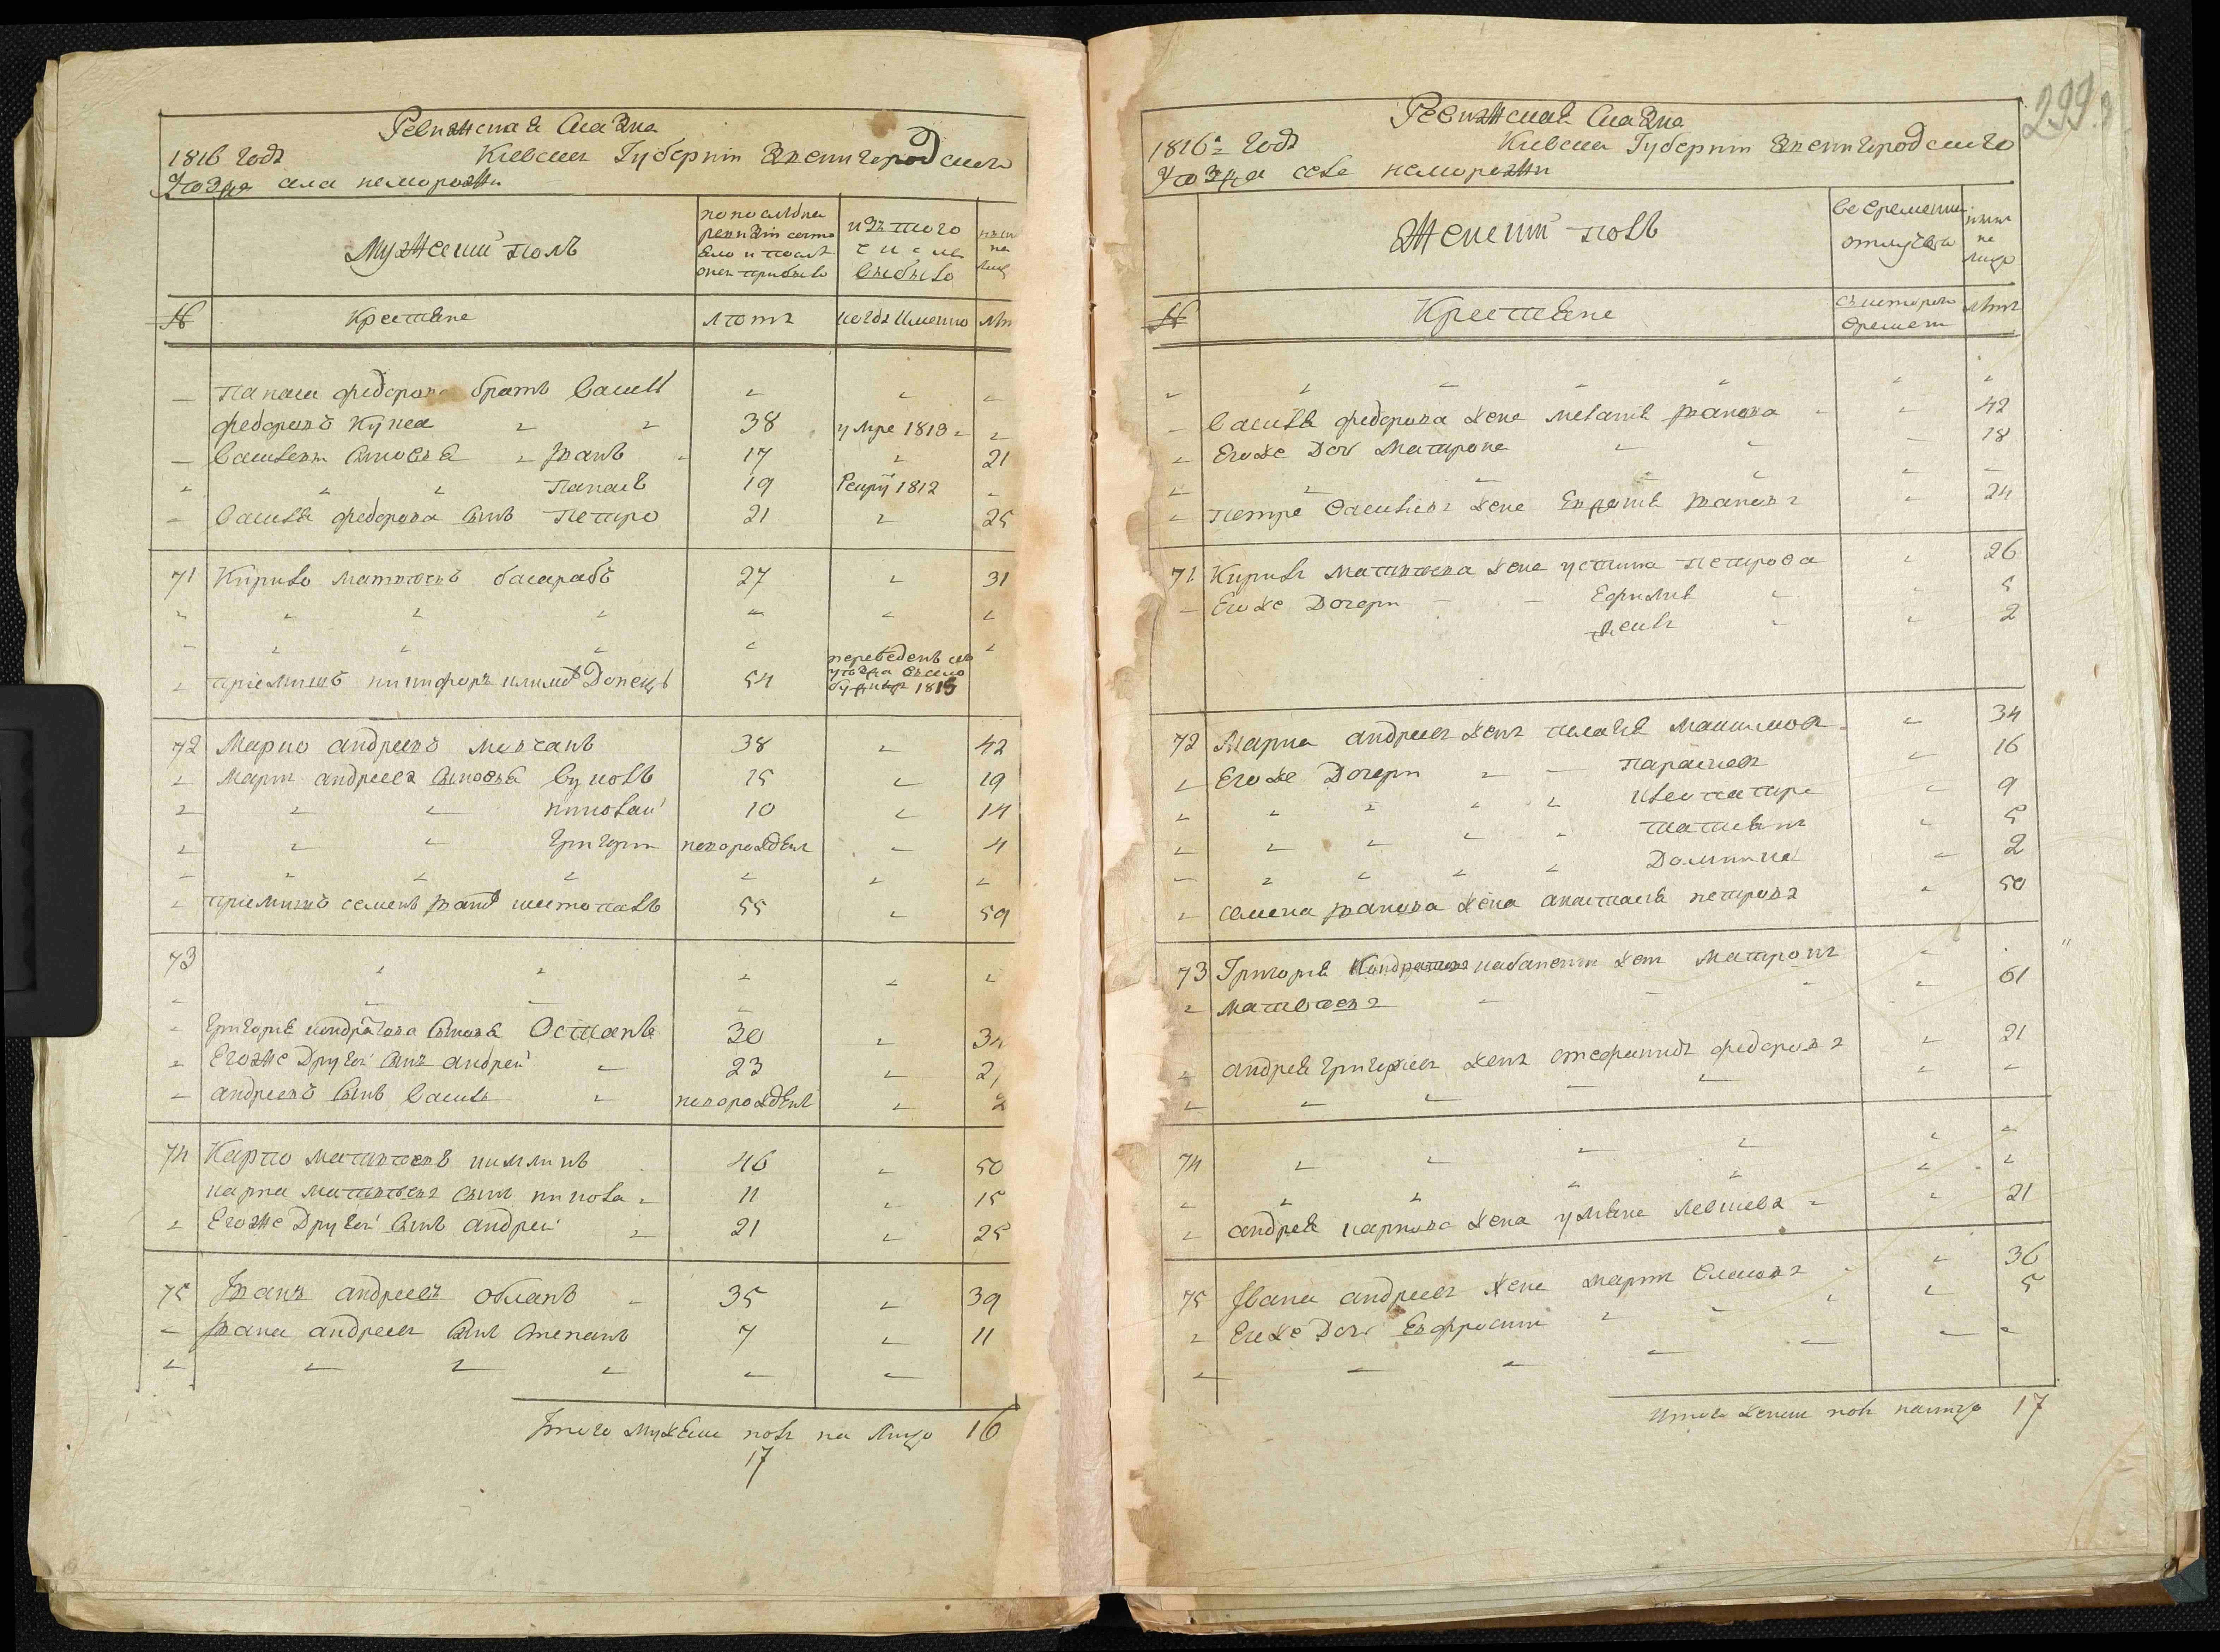 Ревизская Сказка
1816 годъ Киевской Губернiи Звенигородского
Уезда села неморожи
Мужеский полъ
по последней ревизiи состояло и после оной прибыло
изъ того числа выбыло
ныне на лицо
№ Крестяне
летъ
когда именно
летъ
— Панаса федорова братъ Василь
федоровъ Куцеа 38 умре 1813
— Василевы сыновья Иванъ 17 21
Панасъ 19 Рекрут 1812
— Василя федорова сынъ Петро 21 25
71 Кирило матвеевъ басарабъ 27 31
приемишъ никифоръ климовъ Донецъ 54 переведенъ 1815
72 Марко андреевъ мовчанъ 38 42
Марка андреева сыновья Вуколъ 15 19
николай 10 14
григори новорожденъ 4
приемишъ семенъ Ивановъ шестопалъ 55 59
73
григория кондратова сыновья Остапъ 30 34
Егоже Другой сынъ андрей 23 2
андреевъ сынъ Василь новорожденъ 2
74 Карпо матвеевъ 46 50
карпа матвеева сынъ никола 11 15
Егоже Другой сынъ андрей 21 25
75 Иванъ андреевъ 35 39
Ивана андреева сынъ степанъ 7 11
Итого мужеска полъ на лицо 16
17
299
Ревизская Сказка
1816: годъ Киевской Губернiи Звенигородского
Уезда села неморожи
Женский полъ
во временной отлучке
ныне на лицо
№ Крестяне
съ которого времени
летъ
— Василя федорова жена меланя Иванова 42
Егоже Доч Матрона 18
петра василева жена Евдокия Иванова 24
71 Кирила матвеева жена устина петрова 26
— Егоже Дочери Ефимия 5
2
72 Марка андреева жена пелагея Максимова 34
Егоже Дочери параскева 16
клеопатра 9
татияна 5
Домникия 2
семена Иванова жена анастасия петрова 50
73 Григория Кондратова жена Матрона
Матвеева 61
андрея григориева жена стефанида федорова 21
74
андрея карпова жена улияна 21
75 Ивана андреева жена мария власова 36
Егоже Доч Евфросиния 5
Итого женска полъ налицо 17